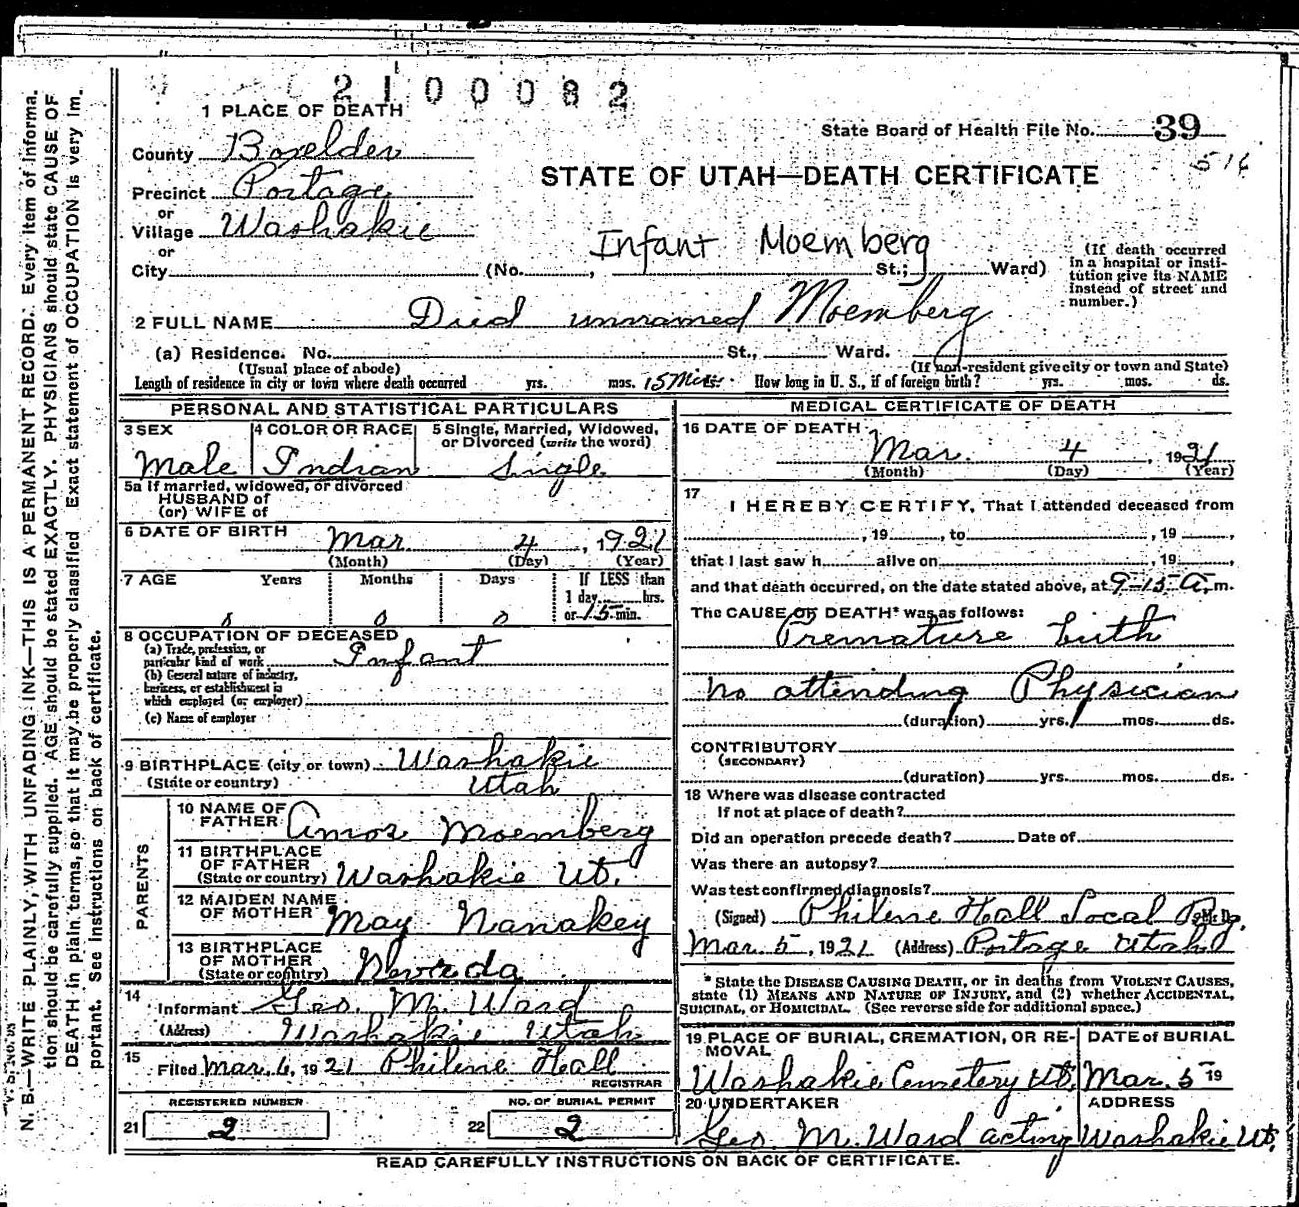 2100082
1 PLACE OF DEATH
State Board of Health File No. 39
516
County Boxelder
STATE OF UTAH—DEATH CERTIFICATE
Precinct Portage
or
Village Washakie
or
Infant Moemberg
City (No. , St.; Ward)
(If death occurred
in a hospital or insti-
tution give its NAME
instead of street and
number.)
2 FULL NAME Died unnamed Moemberg
(a) Residence. No. St., Ward.
(Usual place of abode) (If non-resident give city or town and State)
Length of residence in city or town where death occurred yrs. mos. 15 Mins. How long in U. S., if of foreign birth? yrs. mos. ds.
PERSONAL AND STATISTICAL PARTICULARS
3 SEX 4 COLOR OR RACE 5 Single, Married, Widowed,
or Divorced (write the word)
Male Indian Single
5a If married, widowed, or divorced
HUSBAND of
(or) WIFE of
6 DATE OF BIRTH Mar. 4, 1921
(Month) (Day) (Year)
7 AGE Years Months Days If LESS than
1 day, hrs.
0 0 0 or 15 min.
8 OCCUPATION OF DECEASED
(a) Trade, profession, or
particular kind of work Infant
(b) General nature of industry,
business, or establishment in
which employed (or employer)
(c) Name of employer
9 BIRTHPLACE (city or town) Washakie
(State or country) Utah
PARENTS
10 NAME OF
FATHER Amos Moemberg
11 BIRTHPLACE
OF FATHER
(State or country) Washakie Ut.
12 MAIDEN NAME
OF MOTHER May Nanakey
13 BIRTHPLACE
OF MOTHER
(State or country) Nevada
14 Informant Geo. M. Ward
(Address) Washakie Utah
15 Filed Mar. 6, 1921 Philene Hall
REGISTRAR
REGISTERED NUMBER NO. OF BURIAL PERMIT
21 2 22 2
MEDICAL CERTIFICATE OF DEATH
16 DATE OF DEATH
Mar. 4, 1921
(Month) (Day) (Year)
17
I HEREBY CERTIFY, That I attended deceased from
, 19 , to , 19 ,
that I last saw h alive on , 19 ,
and that death occurred, on the date stated above, at 9-15 A. m.
The CAUSE OF DEATH* was as follows:
Premature birth
no attending Physician
(duration) yrs. mos. ds.
CONTRIBUTORY
(SECONDARY)
(duration) yrs. mos. ds.
18 Where was disease contracted
If not at place of death?
Did an operation precede death? Date of
Was there an autopsy?
Was test confirmed diagnosis?
(Signed) Philene Hall Local Reg.
Mar. 5, 1921 (Address) Portage Utah
* State the DISEASE CAUSING DEATH, or in deaths from VIOLENT CAUSES,
state (1) MEANS AND NATURE OF INJURY, and (2) whether ACCIDENTAL,
SUICIDAL, or HOMICIDAL. (See reverse side for additional space.)
19 PLACE OF BURIAL, CREMATION, OR RE- DATE of BURIAL
MOVAL
Washakie Cemetery Ut. Mar. 5 19
20 UNDERTAKER ADDRESS
Geo. M. Ward acting Washakie Ut.
READ CAREFULLY INSTRUCTIONS ON BACK OF CERTIFICATE.
N. B.—WRITE PLAINLY, WITH UNFADING INK—THIS IS A PERMANENT RECORD. Every item of informa-
tion should be carefully supplied. AGE should be stated EXACTLY. PHYSICIANS should state CAUSE OF
DEATH in plain terms, so that it may be properly classified. Exact statement of OCCUPATION is very im-
portant. See instructions on back of certificate.